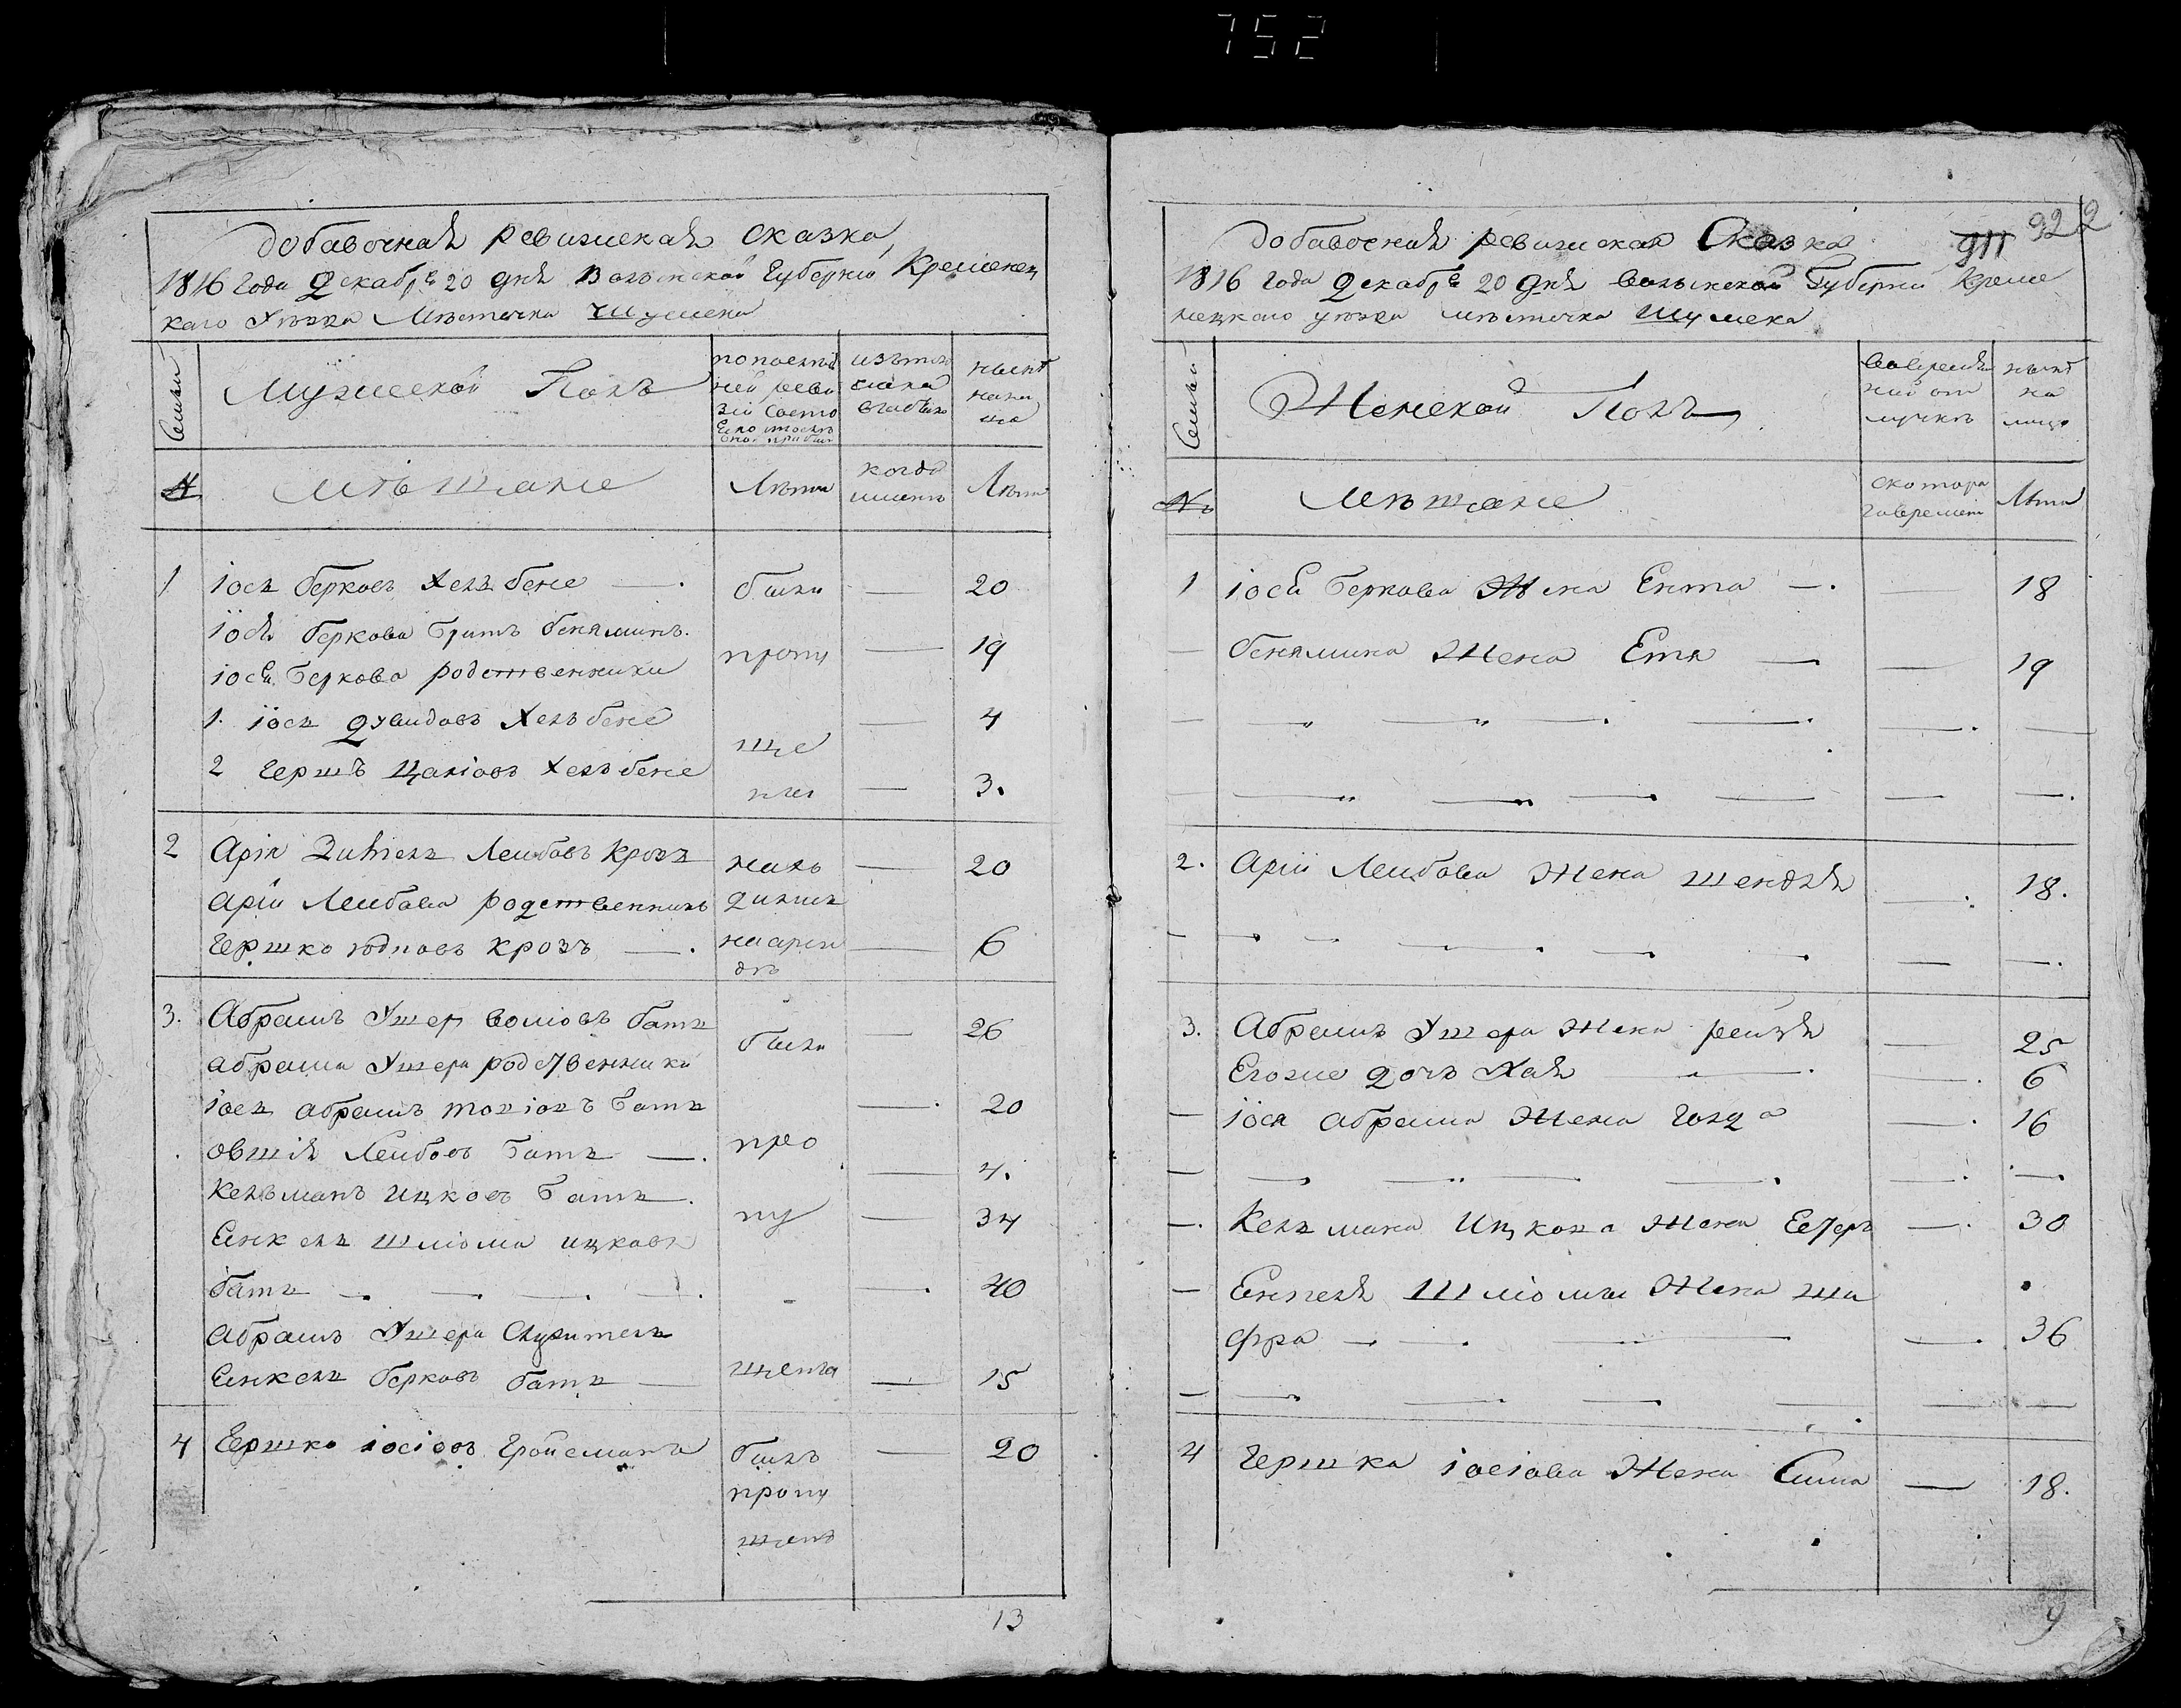 752
добавочная ревизская сказка
1816 года декабрѧ 20 дня Волынской Губерніи Кременец
каго Уѣзда Мѣстечка Шумска
Семьи
Мужеской Полъ
по послѣд
ней реви
зіи состо
изътого
числа
выбыло
нынѣ
нали
цо
№
мѣщане
Лѣта
когда
имянно
Лѣта
1 іосъ берковъ Хельбене — были — 20
іося беркова братъ беняминъ. пропу — 19
іося беркова родственники
1. іось дувидовъ Хельбене — 4
ще
2 Гершъ Цаліовъ Хельбене ны — 3.
2 Арія Лейбовъ Крозъ нахо — 20
арія Лейбова родственникъ дился
Гершко юдковъ крозъ —. наарен — 6
дѣ
3. Абрамъ Ушер батъ были — 26
абрама Ушера родственники
іось абрамъ батъ —. 20
овшія Лейбовъ батъ —. про — 4.
Кельманъ ицковъ батъ —. пу — 34
Янкель шліома ицковъ
батъ —. —. —. —. —. 40
Абрамъ Ушера служитель
Янкель берковъ батъ — щены — 15
4 Гершко іосіовъ Гройсманъ былъ — 20
пропу
щенъ
13
добавочная ревизская Сказка
911 922
1816 года декабрѧ 20 дня волынской Губерніи Креме
нецкого уѣзда мѣстечка Шумска
Семьи
Женской Полъ
вовремен
ной от
лучкѣ
нынѣ
на
лицо
№
мѣщане
скотора
говремени
Лѣта
1 іося беркова Жена Ента —. — 18
— бенямина Жена Етя — — 19
— — „ — „ —. —. —. —
— — „ — „ —. — — —.
2. Арія Лейбова Жена шендля —. 18.
— —. — —. —. —. — —.
3. Абрамъ Ушера Жена рейзя — 25
Егоже дочь Хая — —. —. 6
— іося абрама Жена Голда —. 16
— —. — „ — —. —. —.
—. Кельмана Ицкова Жена Естеръ —. 30
— Янкеля Шліомы Жена ши
фра —. —. — — —. 36
— —. — —. — — —
4 Гершка іосіова Жена Сима — 18.
9